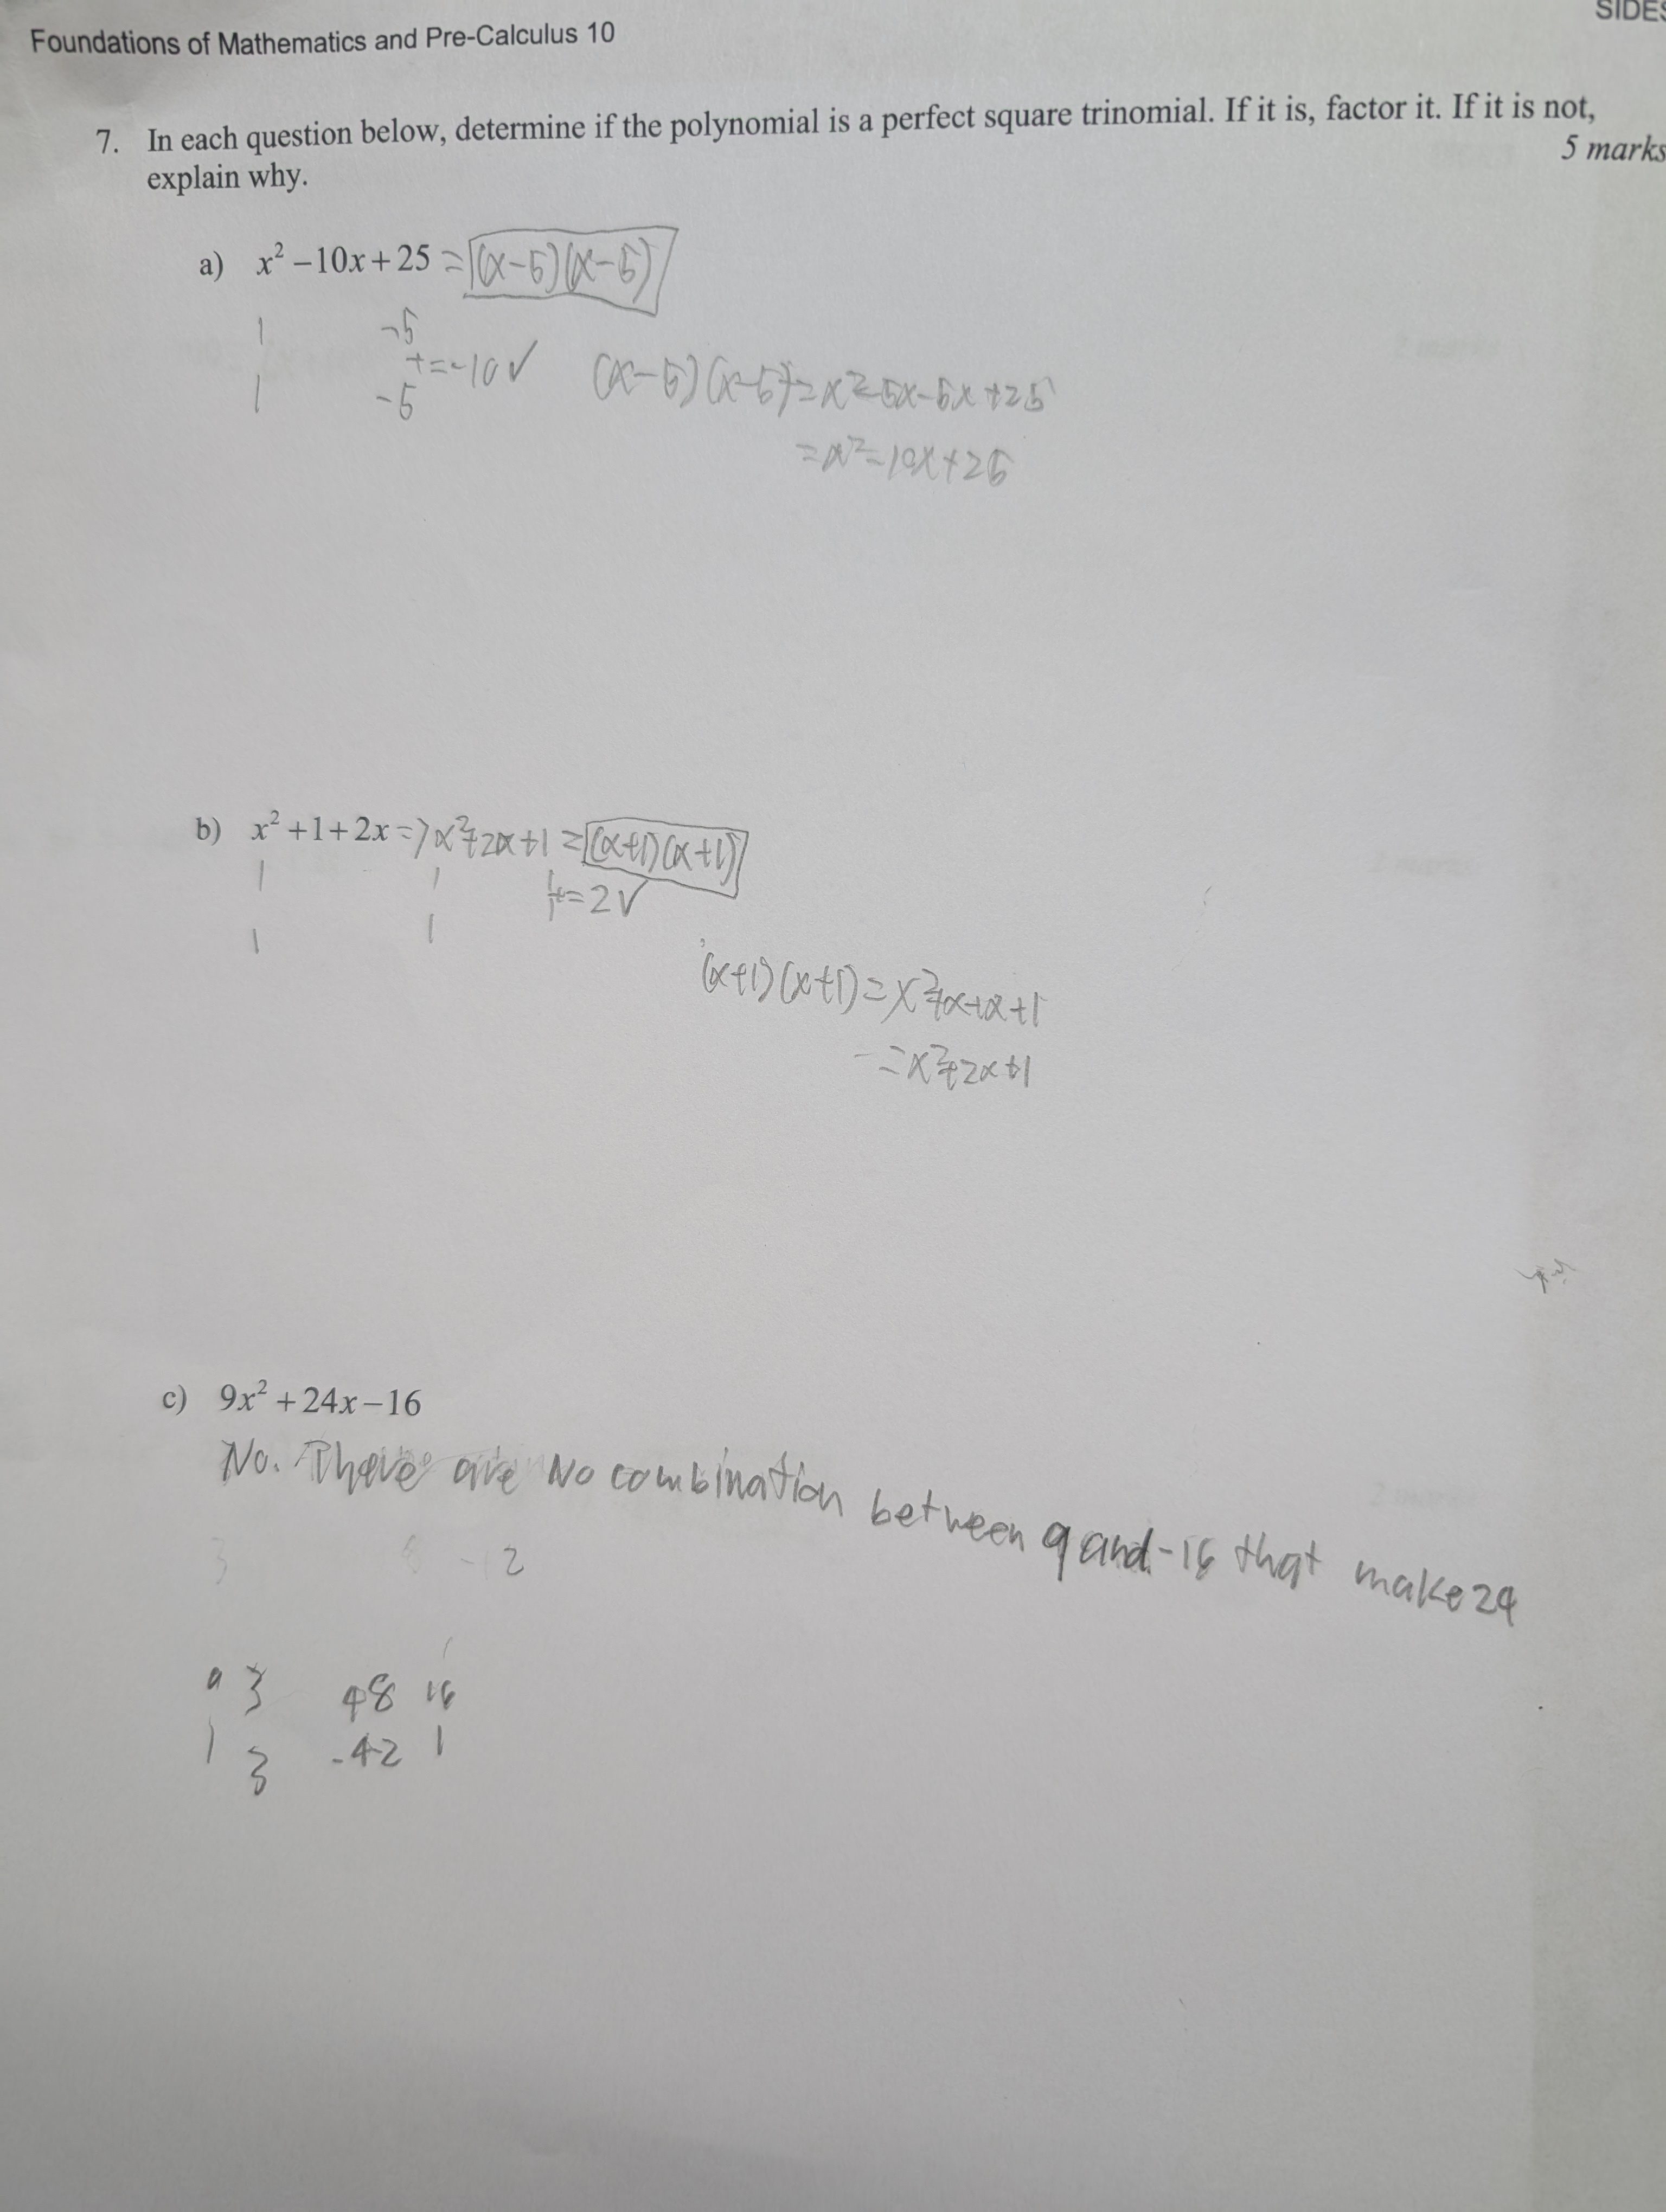 SIDES
Foundations of Mathematics and Pre-Calculus 10
7. In each question below, determine if the polynomial is a perfect square trinomial. If it is, factor it. If it is not,
explain why.
5 marks
a) x² −10x+25 = (x−5)(x−5)
1 -5
+=-10✓
1 -5
(x-5)(x-5)=x²-5x-5x+25
=x²-10x+25
b) x² +1+2x => x²+2x+1 = (x+1)(x+1)
1 1
1/1 +=2✓
1 1
(x+1)(x+1)=x²+x+x+1
=x²+2x+1
c) 9x² +24x−16
No. There are No combination between 9 and -16 that make 24
3 2
9 3 48 16
1 3 -42 1